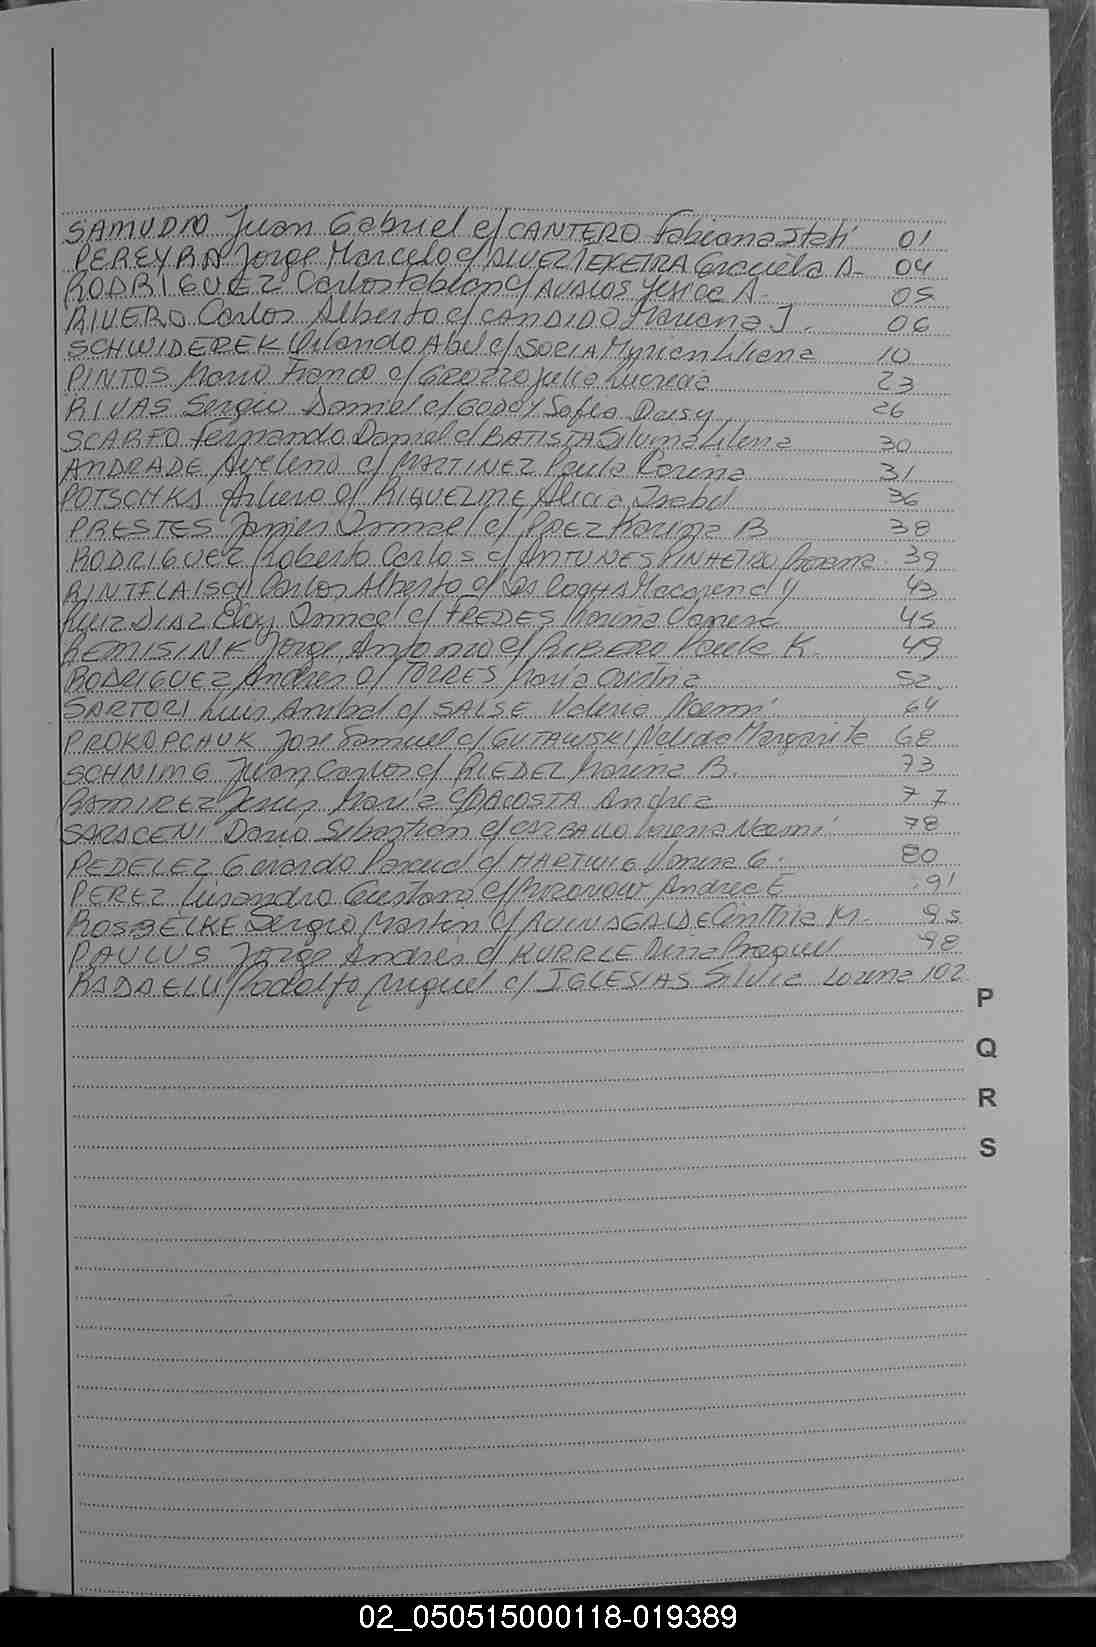 SAMUDIO Juan Gabriel c/ CANTERO Fabiana Itati 01
PEREYRA Jorge Marcelo c/ ALVEZ TEXEIRA Graciela A. 04
RODRIGUEZ Carlos Fabian c/ AVALOS Yesica A. 05
RIVERO Carlos Alberto c/ CANDIDO Mariana J. 06
SCHWIDEREK Orlando Abel c/ SORIA Myrien Liliana 10
PINTOS Mario Franco c/ GROZZO Julia Lucrecia 23
RIVAS Sergio Daniel c/ GODOY Sofia Daisy 26
SCARFO Fernando Daniel c/ BATISTA Silvina Liliana 30
ANDRADE Avelino c/ MARTINEZ Paula Corina 31
POTSCHKA Arturo c/ RIQUELME Alicia Isabel 36
PRESTES Javier Ismael c/ PAEZ Karina B 38
RODRIGUEZ Roberto Carlos c/ ANTUNES PINHEIRO 39
Carlos Alberto c/ Macarena Y 43
RUIZ DIAZ Eloy Ismael c/ FREDES Karina Vanesa 45
REMISINK Jorge Antonio c/ RIBERO Paula K. 49
RODRIGUEZ Andres c/ TORRES Maria Cristina 52
SARTORI Luis Anibal c/ SALSE Valeria Noemi 64
PROKOPCHUK Jose Samuel c/ GUTAWSKI Nelida Margarita 68
SCHNIMG Juan Carlos c/ RIEDEL Karina B. 73
RAMIREZ Jesus Maria c/ DACOSTA Andrea 77
SARACENI Dario Sebastian c/ CARBALLO Lorena Noemi 78
PEDELEZ Gerardo c/ HARTWIG Vanina G. 80
PEREZ Lisandro Gustavo c/ Andrea E 91
ROSBELKE Sergio Martin c/ Cinthia M. 95
PAULUS Jorge Andres c/ KURRLE Dina Raquel 98
RADAELLI Rodolfo Miguel c/ IGLESIAS Silvia Lorena 102
P
Q
R
S
02_050515000118-019389